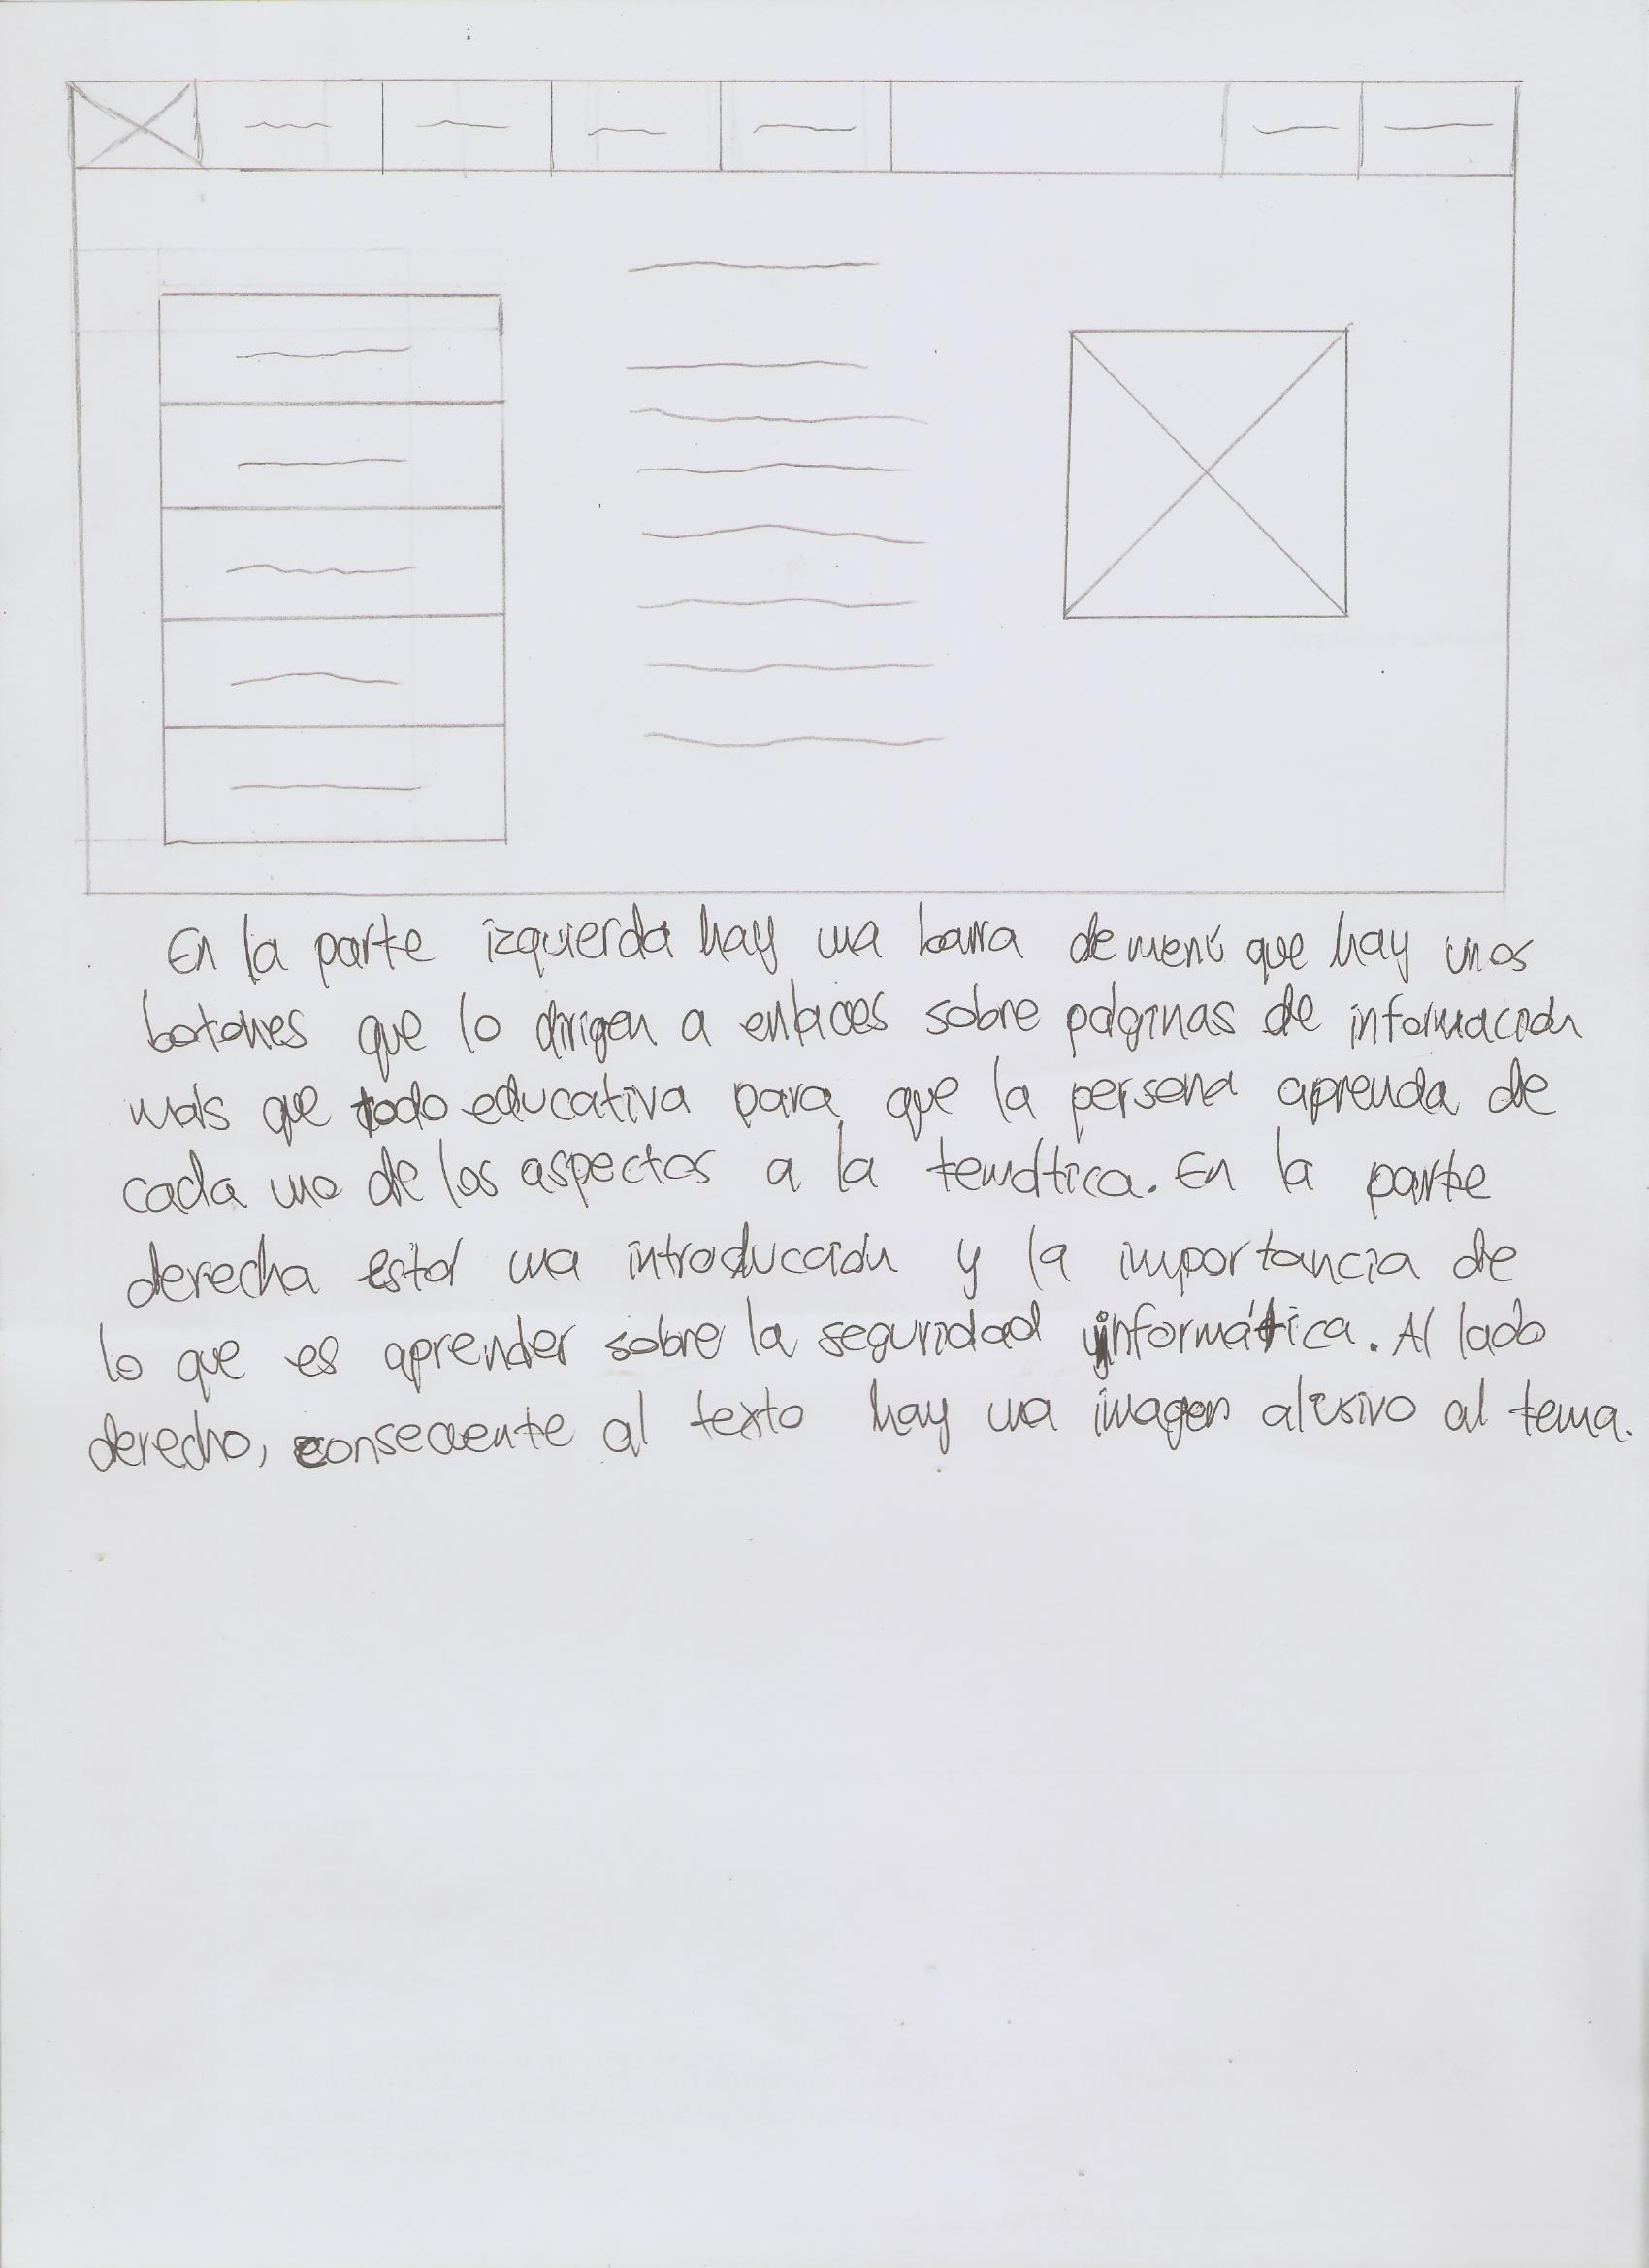 En la parte izquierda hay una barra de menú que hay unos
botones que lo dirigen a enlaces sobre páginas de información
más que todo educativa para que la persona aprenda de
cada uno de los aspectos a la temática. En la parte
derecha está una introducción y la importancia de
lo que es aprender sobre la seguridad informática. Al lado
derecho, consecuente al texto hay una imagen alusivo al tema.